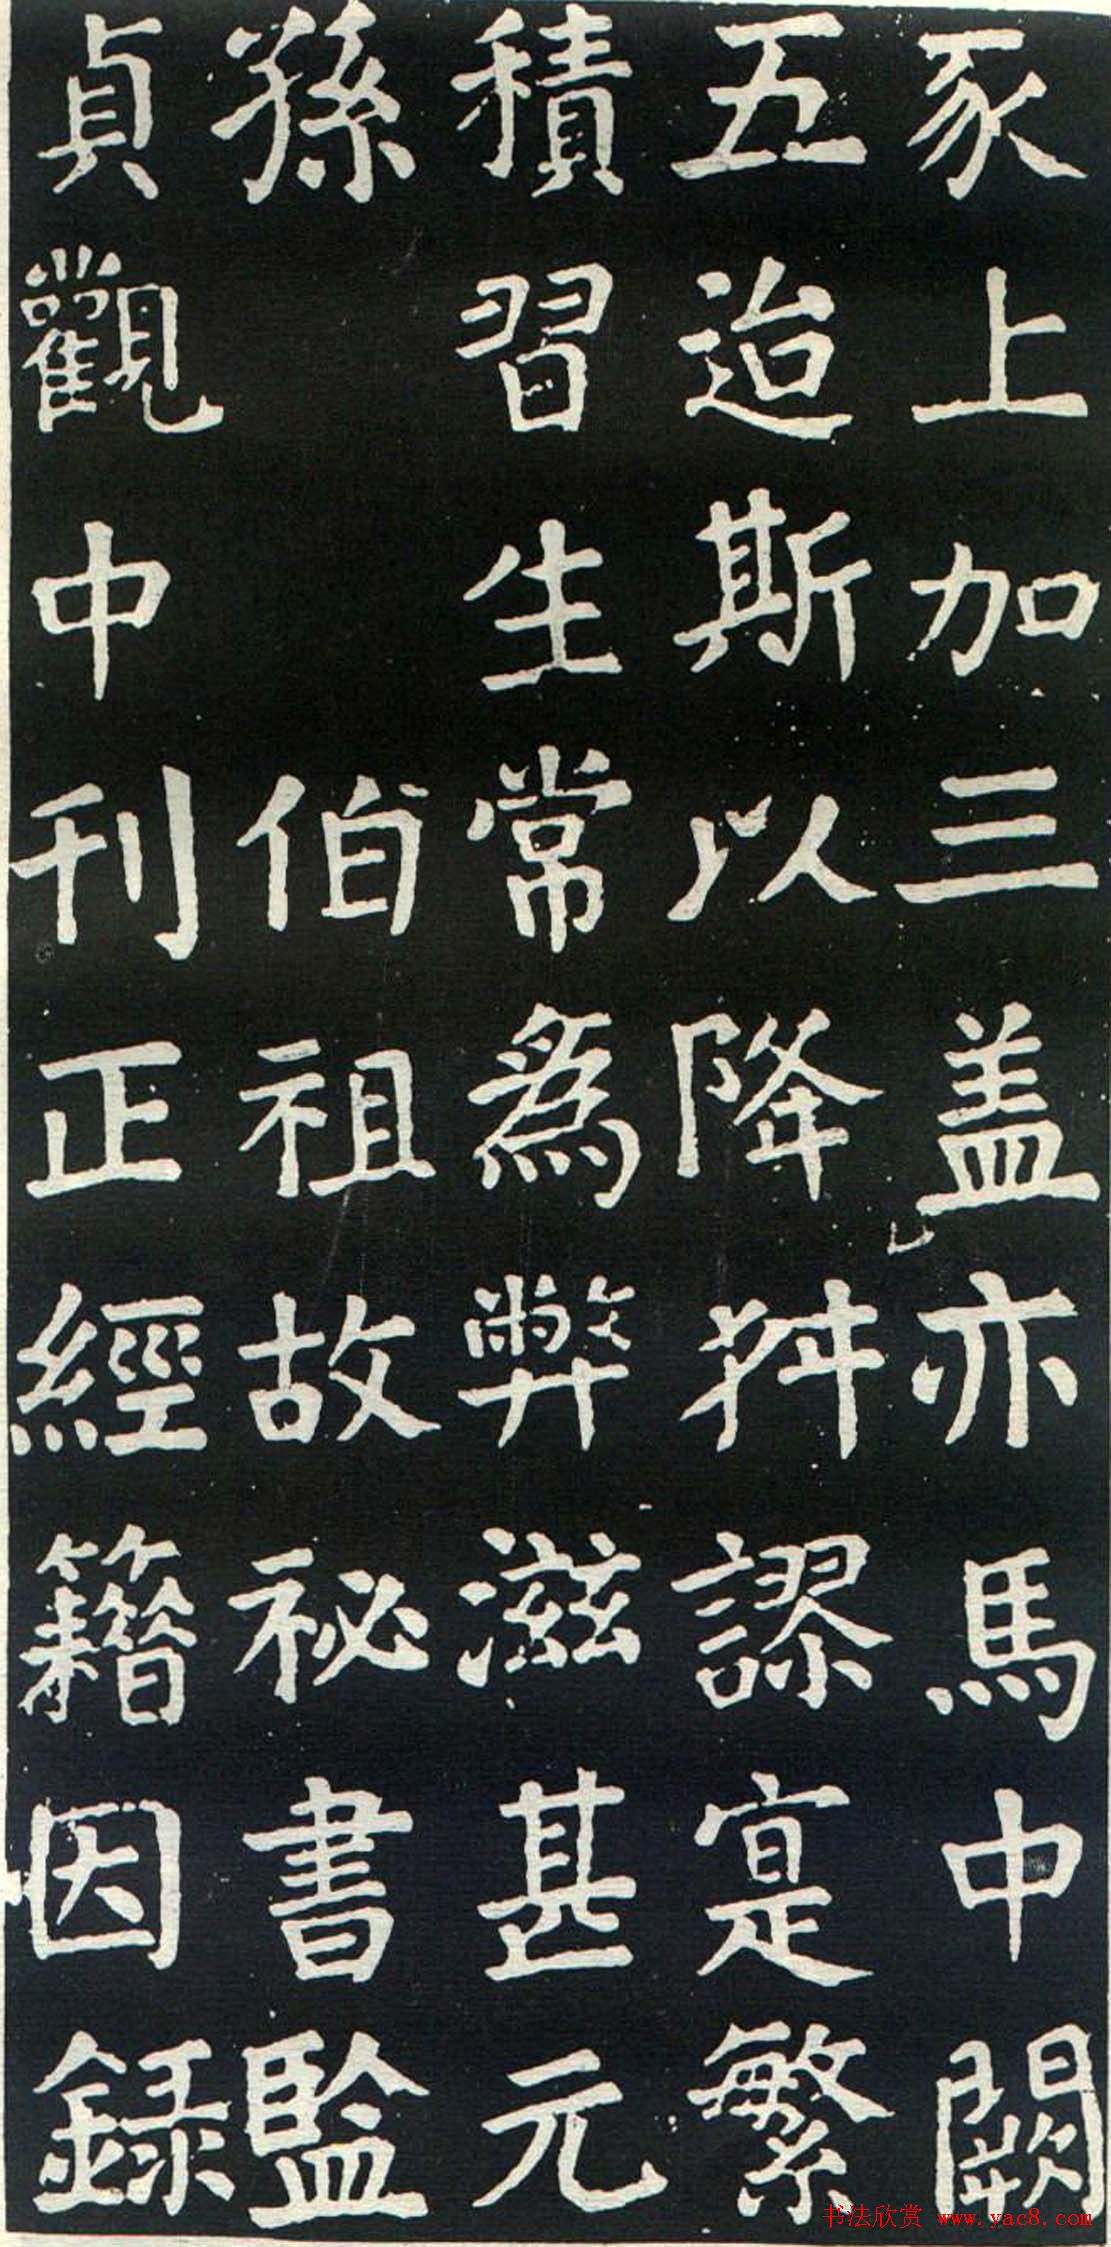 豕上加三盖亦馬中闕
五迨斯以降舛謬寔繁
積習生常為弊滋甚元
孫 伯祖故祕書監
貞觀中刊正經籍因錄
书法欣赏 www.yac8.com